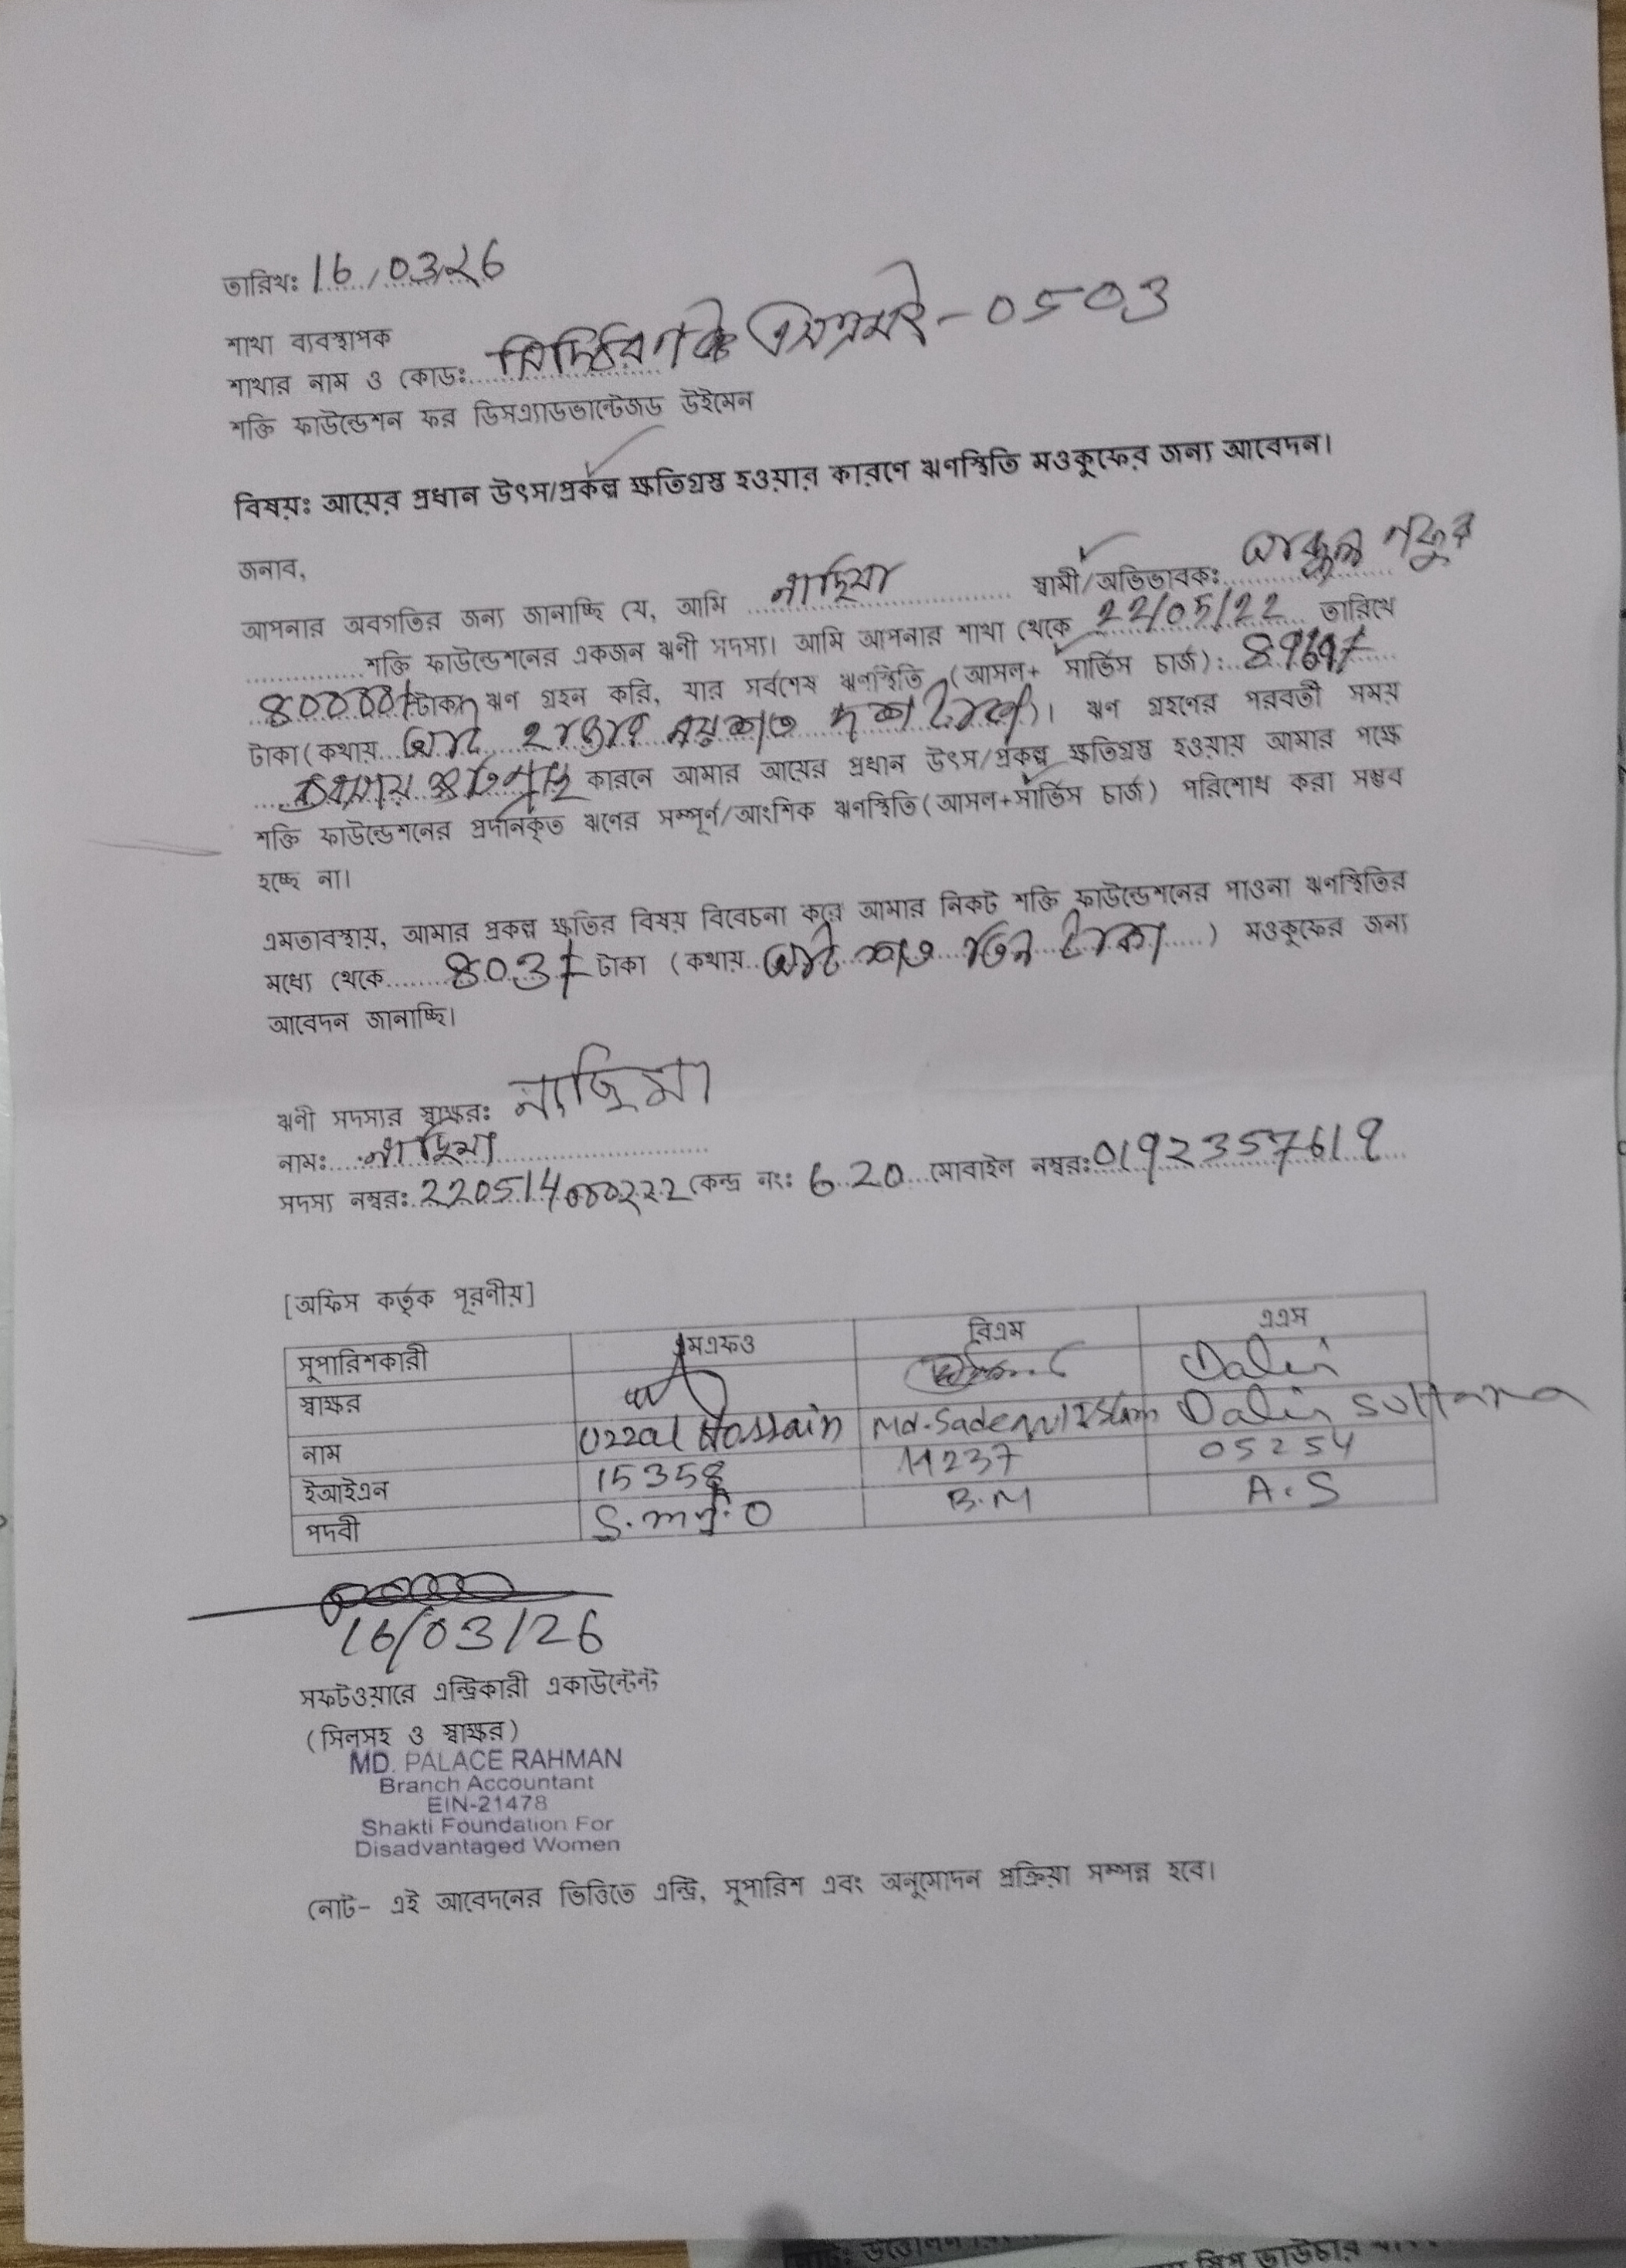 তারিখঃ 16/03/26
শাখা ব্যবস্থাপক
শাখার নাম ও কোডঃ এসএমই-0503
শক্তি ফাউন্ডেশন ফর ডিসএ্যাডভান্টেজড উইমেন
বিষয়ঃ আয়ের প্রধান উৎস/প্রকল্প ক্ষতিগ্রস্ত হওয়ার কারণে ঋণস্থিতি মওকুফের জন্য আবেদন।
জনাব,
আপনার অবগতির জন্য জানাচ্ছি যে, আমি নাছিমা স্বামী/অভিভাবকঃ
শক্তি ফাউন্ডেশনের একজন ঋণী সদস্য। আমি আপনার শাখা থেকে 22/05/22 তারিখে
টাকা ঋণ গ্রহন করি, যার সর্বশেষ ঋণস্থিতি (আসল+ সার্ভিস চার্জ):
টাকা(কথায় )। ঋণ গ্রহণের পরবর্তী সময়
কারনে আমার আয়ের প্রধান উৎস/প্রকল্প ক্ষতিগ্রস্ত হওয়ায় আমার পক্ষে
শক্তি ফাউন্ডেশনের প্রদানকৃত ঋণের সম্পূর্ণ/আংশিক ঋণস্থিতি(আসল+সার্ভিস চার্জ) পরিশোধ করা সম্ভব
হচ্ছে না।
এমতাবস্থায়, আমার প্রকল্প ক্ষতির বিষয় বিবেচনা করে আমার নিকট শক্তি ফাউন্ডেশনের পাওনা ঋণস্থিতির
মধ্যে থেকে 803/- টাকা (কথায় আট শত তিন টাকা) মওকুফের জন্য
আবেদন জানাচ্ছি।
ঋণী সদস্যর স্বাক্ষরঃ নাছিমা
নামঃ নাছিমা
সদস্য নম্বরঃ কেন্দ্র নংঃ 620 মোবাইল নম্বরঃ
[অফিস কর্তৃক পূরণীয়]
সুপারিশকারী এমএফও বিএম এএস
স্বাক্ষর Dalia
নাম Uzzal Hossain Dalia Sultana
ইআইএন 15358 11237 05254
পদবী B.M A.S
16/03/26
সফটওয়ারে এন্ট্রিকারী একাউন্টেন্ট
(সিলসহ ও স্বাক্ষর)
MD. PALACE RAHMAN
Branch Accountant
EIN-21478
Shakti Foundation For
Disadvantaged Women
নোট- এই আবেদনের ভিত্তিতে এন্ট্রি, সুপারিশ এবং অনুমোদন প্রক্রিয়া সম্পন্ন হবে।